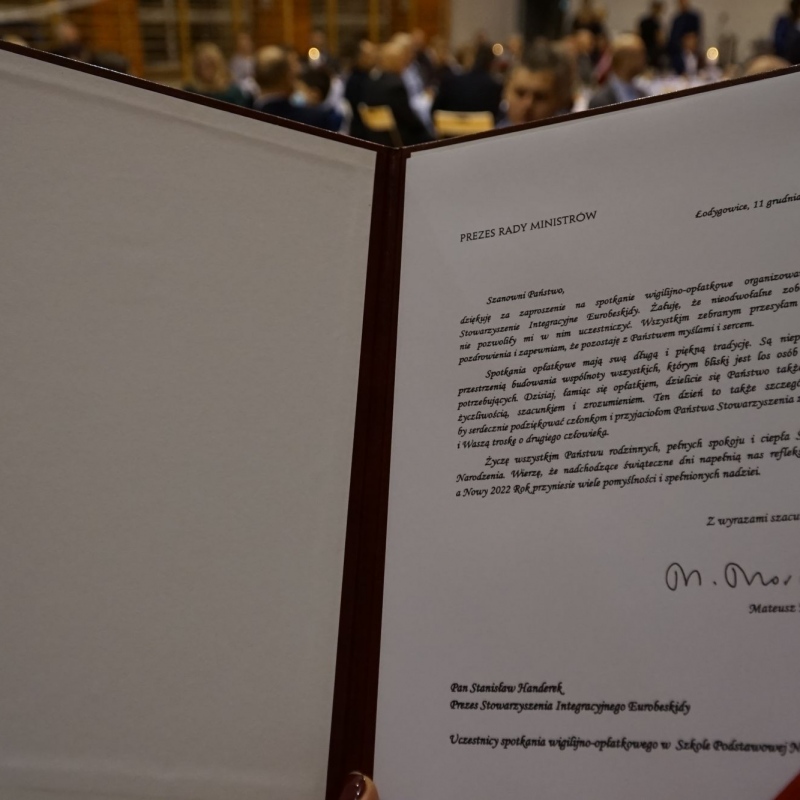 PREZES RADY MINISTRÓW
Łodygowice, 11 grudnia
Szanowni Państwo,
dziękuję za zaproszenie na spotkanie wigilijno-opłatkowe
Stowarzyszenie Integracyjne Eurobeskidy. Żałuję, że nieodwołalne
nie pozwoliły mi w nim uczestniczyć. Wszystkim zebranym przesyłam
pozdrowienia i zapewniam, że pozostaję z Państwem myślami i sercem.
Spotkania opłatkowe mają swą długą i piękną tradycję. Są
przestrzenią budowania wspólnoty wszystkich, którym bliski jest los osób
potrzebujących. Dzisiaj, łamiąc się opłatkiem, dzielicie się Państwo
życzliwością, szacunkiem i zrozumieniem. Ten dzień to także
by serdecznie podziękować członkom i przyjaciołom Państwa Stowarzyszenia
i Waszą troskę o drugiego człowieka.
Życzę wszystkim Państwu rodzinnych, pełnych spokoju i ciepła
Narodzenia. Wierzę, że nadchodzące świąteczne dni napełnią nas
a Nowy 2022 Rok przyniesie wiele pomyślności i spełnionych nadziei.
Z wyrazami
M.
Mateusz
Pan Stanisław Handerek
Prezes Stowarzyszenia Integracyjnego Eurobeskidy
Uczestnicy spotkania wigilijno-opłatkowego w Szkole Podstawowej